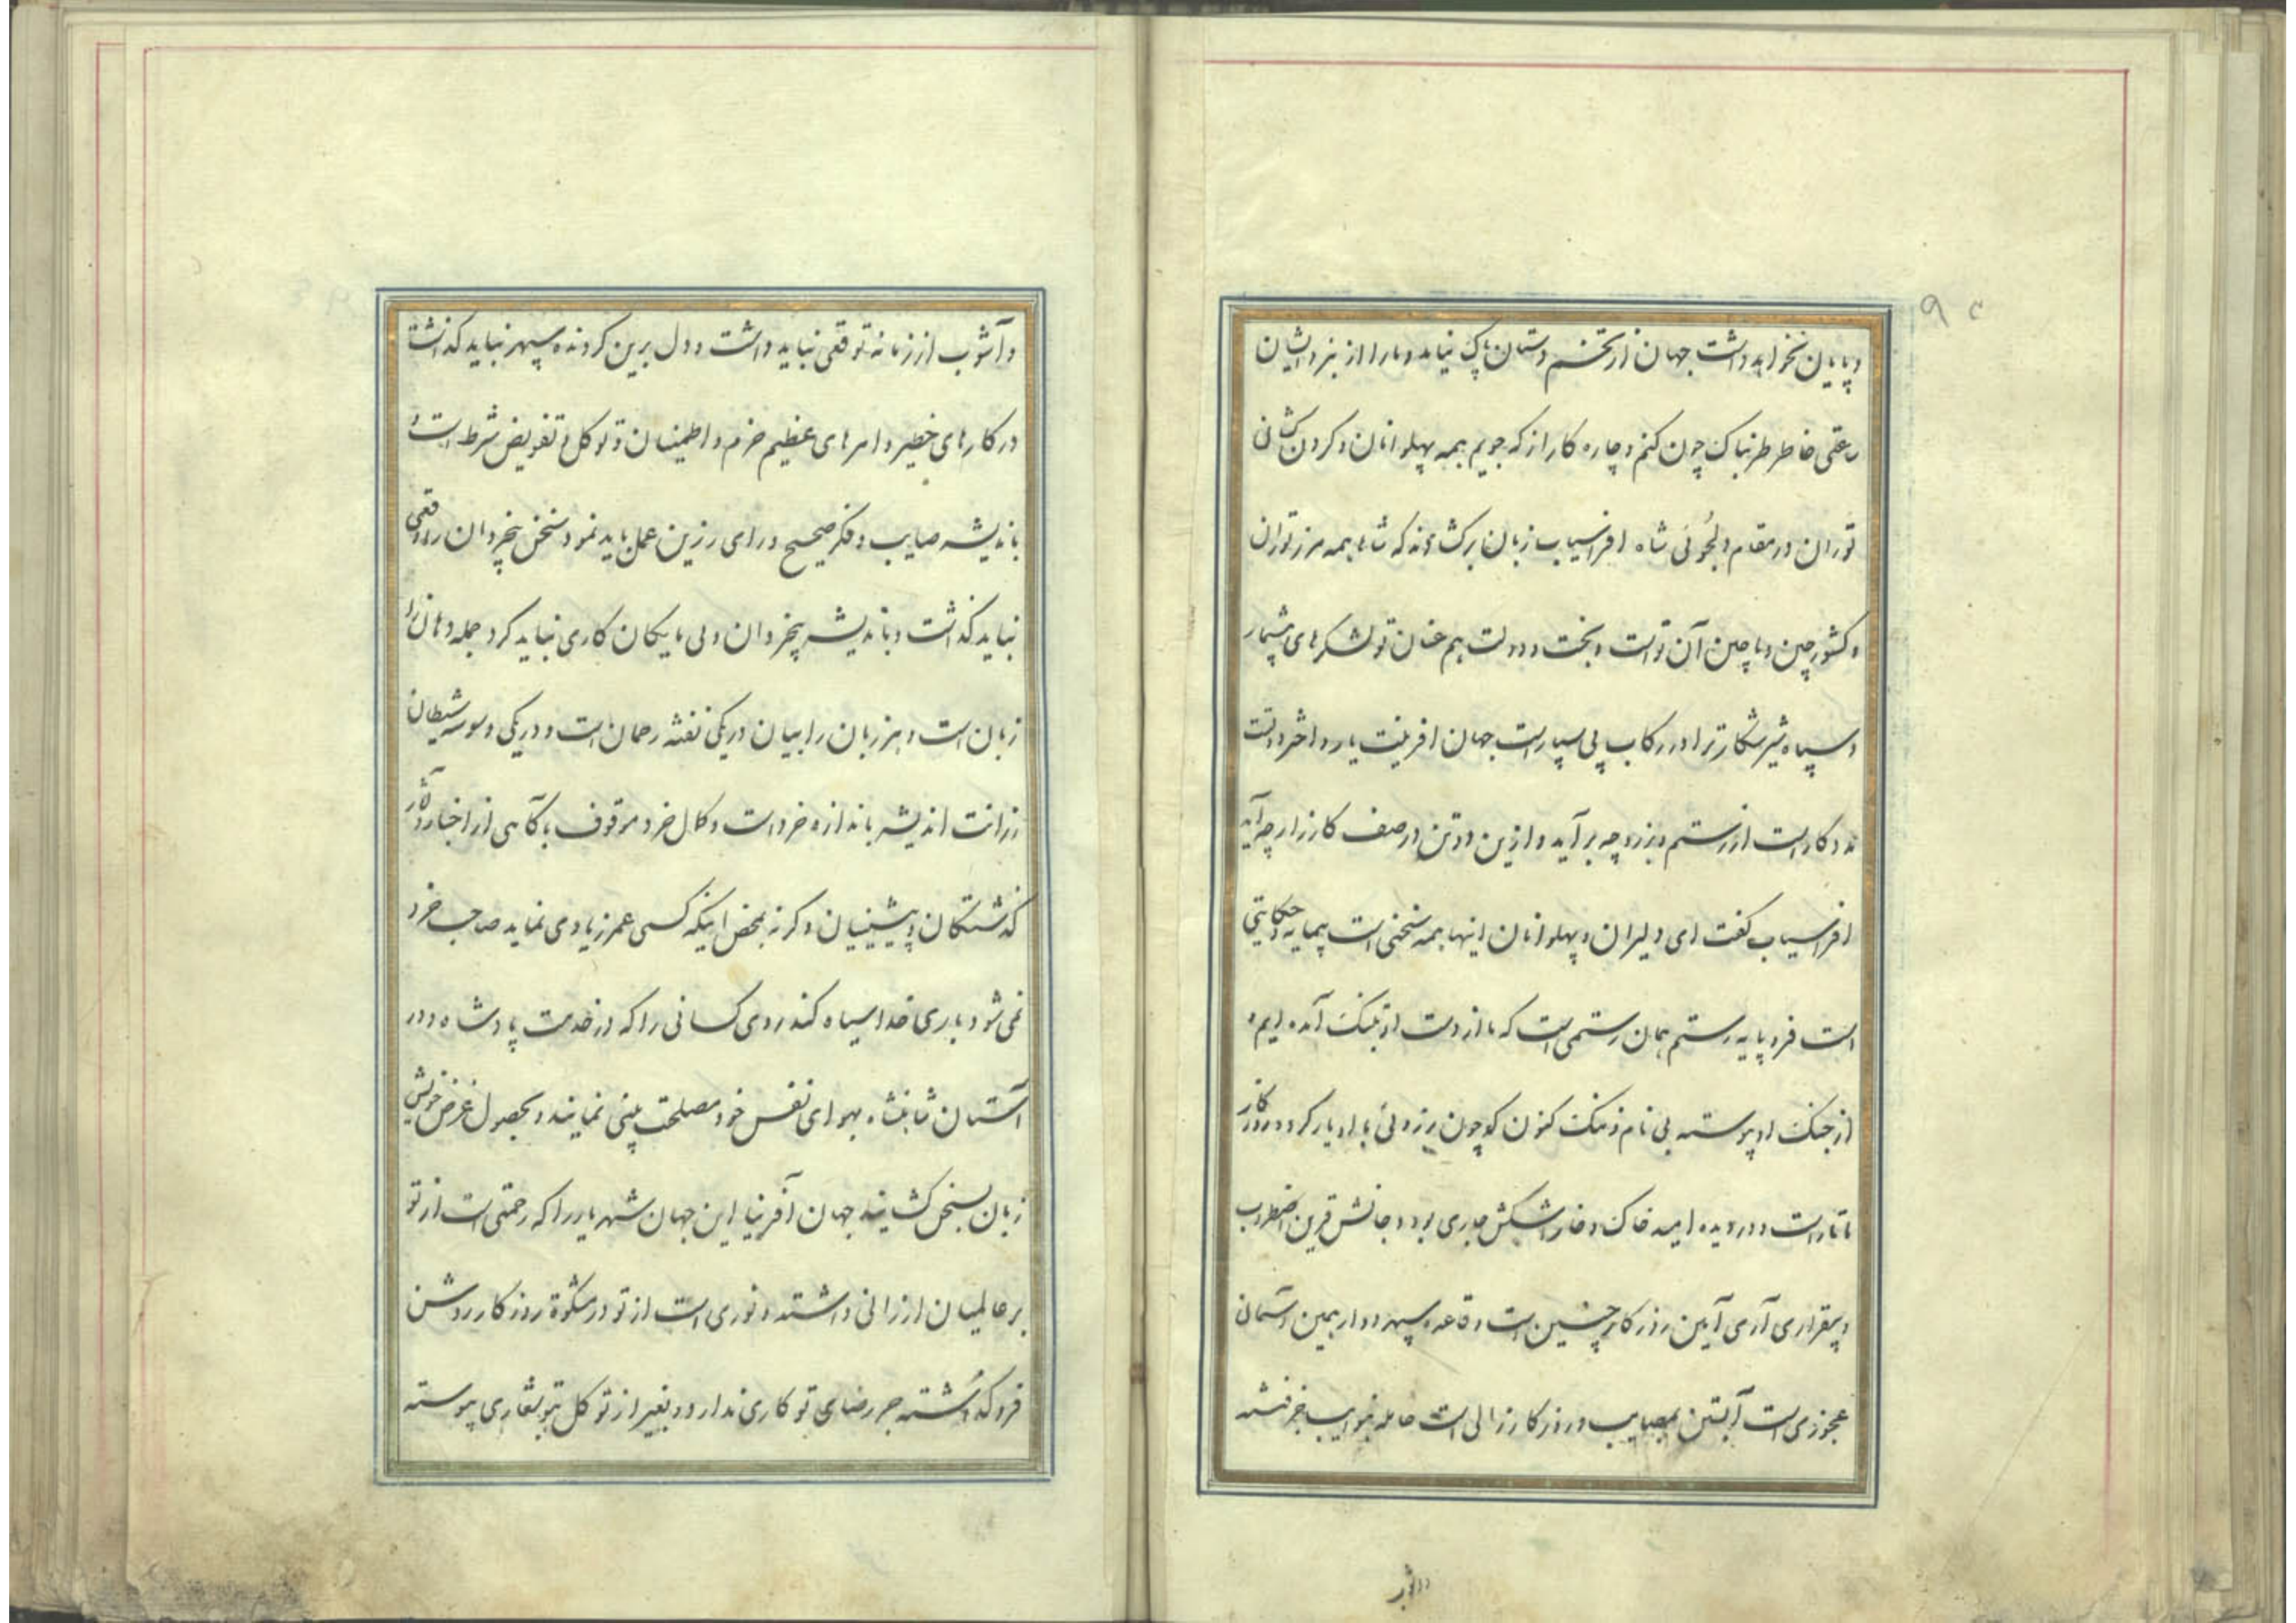 و پایان نخواهد داشت جهان از تخم دستان پاک نیاید و ما را از نبرد ایشان
رمقی خاطر طربناک چون کنم و چاره کار از که جویم همه پهلوانان و گردن کشانی
توران در مقام دلجوئی شاه افراسیاب زبان برکشادند که شاها همه مرز توران
و کشور چین و ماچین آن تو است و بخت و دولت هم عنان تو لشکرهای بیشمار
و سپاه شیر شکار ترا در رکاب پی سپار است جهان افرینت یار و اختر و بخت
مددکار است از رستم و برزو چه برآید و ازین دو تن در صف کارزار چه آید
افراسیاب کفت ای دلیران و پهلوانان اینها همه سخنی است بیمایه و حکایتی
است فرو پایه رستم همان رستمی است که ما از دست او بتنک آمده ایم و
از جنک او پیوسته بی نام و ننک کنون که چون برزوئی با او یار کرد و روز کار
ما تار است و در دیده امید خاک و خار اشکش جاری بود و جانش قرین اضطراب
و بیقراری آری آیین روزکار چنین است و قاعده سپهر دوار همین آسمان
عجوزی است آبستن بمصایب و روزکار زالی است حامله بنوایب جز فتنه
و آشوب از زمانه توقعی نباید داشت و دل برین کردنده سپهر نباید کذاشت
در کارهای خطیر و امرهای عظیم حزم و اطمینان و توکل و تفویض شرط است و
باندیشه صایب و فکر صحیح و رای رزین عمل باید نمود سخن بیخردان را وقعی
نباید کذاشت و باندیشه بیخردان و بی مایکان کاری نباید کرد جمله دهان را
زبان است و هر زبان را بیان در یکی نفثه رحمان است و در یکی وسوسه شیطان
رزانت اندیشه باندازه خرد است و کمال خرد موقوف بآکاهی از اخبار و آثار
کذشتکان و پیشینیان و کرنه بمحض اینکه کسی عمر زیادی نماید صاحب خرد
نمی شود باری خدا سیاه کند روی کسانی را که در خدمت پادشاه و در
آستان شاهنشاه بهوای نفس خود مصلحت بینی نمایند و بحصول غرض خویش
زبان بسخن کشایند جهان آفرینا این جهان شهریار را که رحمتی است از تو
بر عالمیان ارزانی داشته و نوری است از تو در مشکوة روزکار روشن
فروکذاشته جز رضای تو کاری ندارد و بغیر از توکل بتو شعاری پیوسته